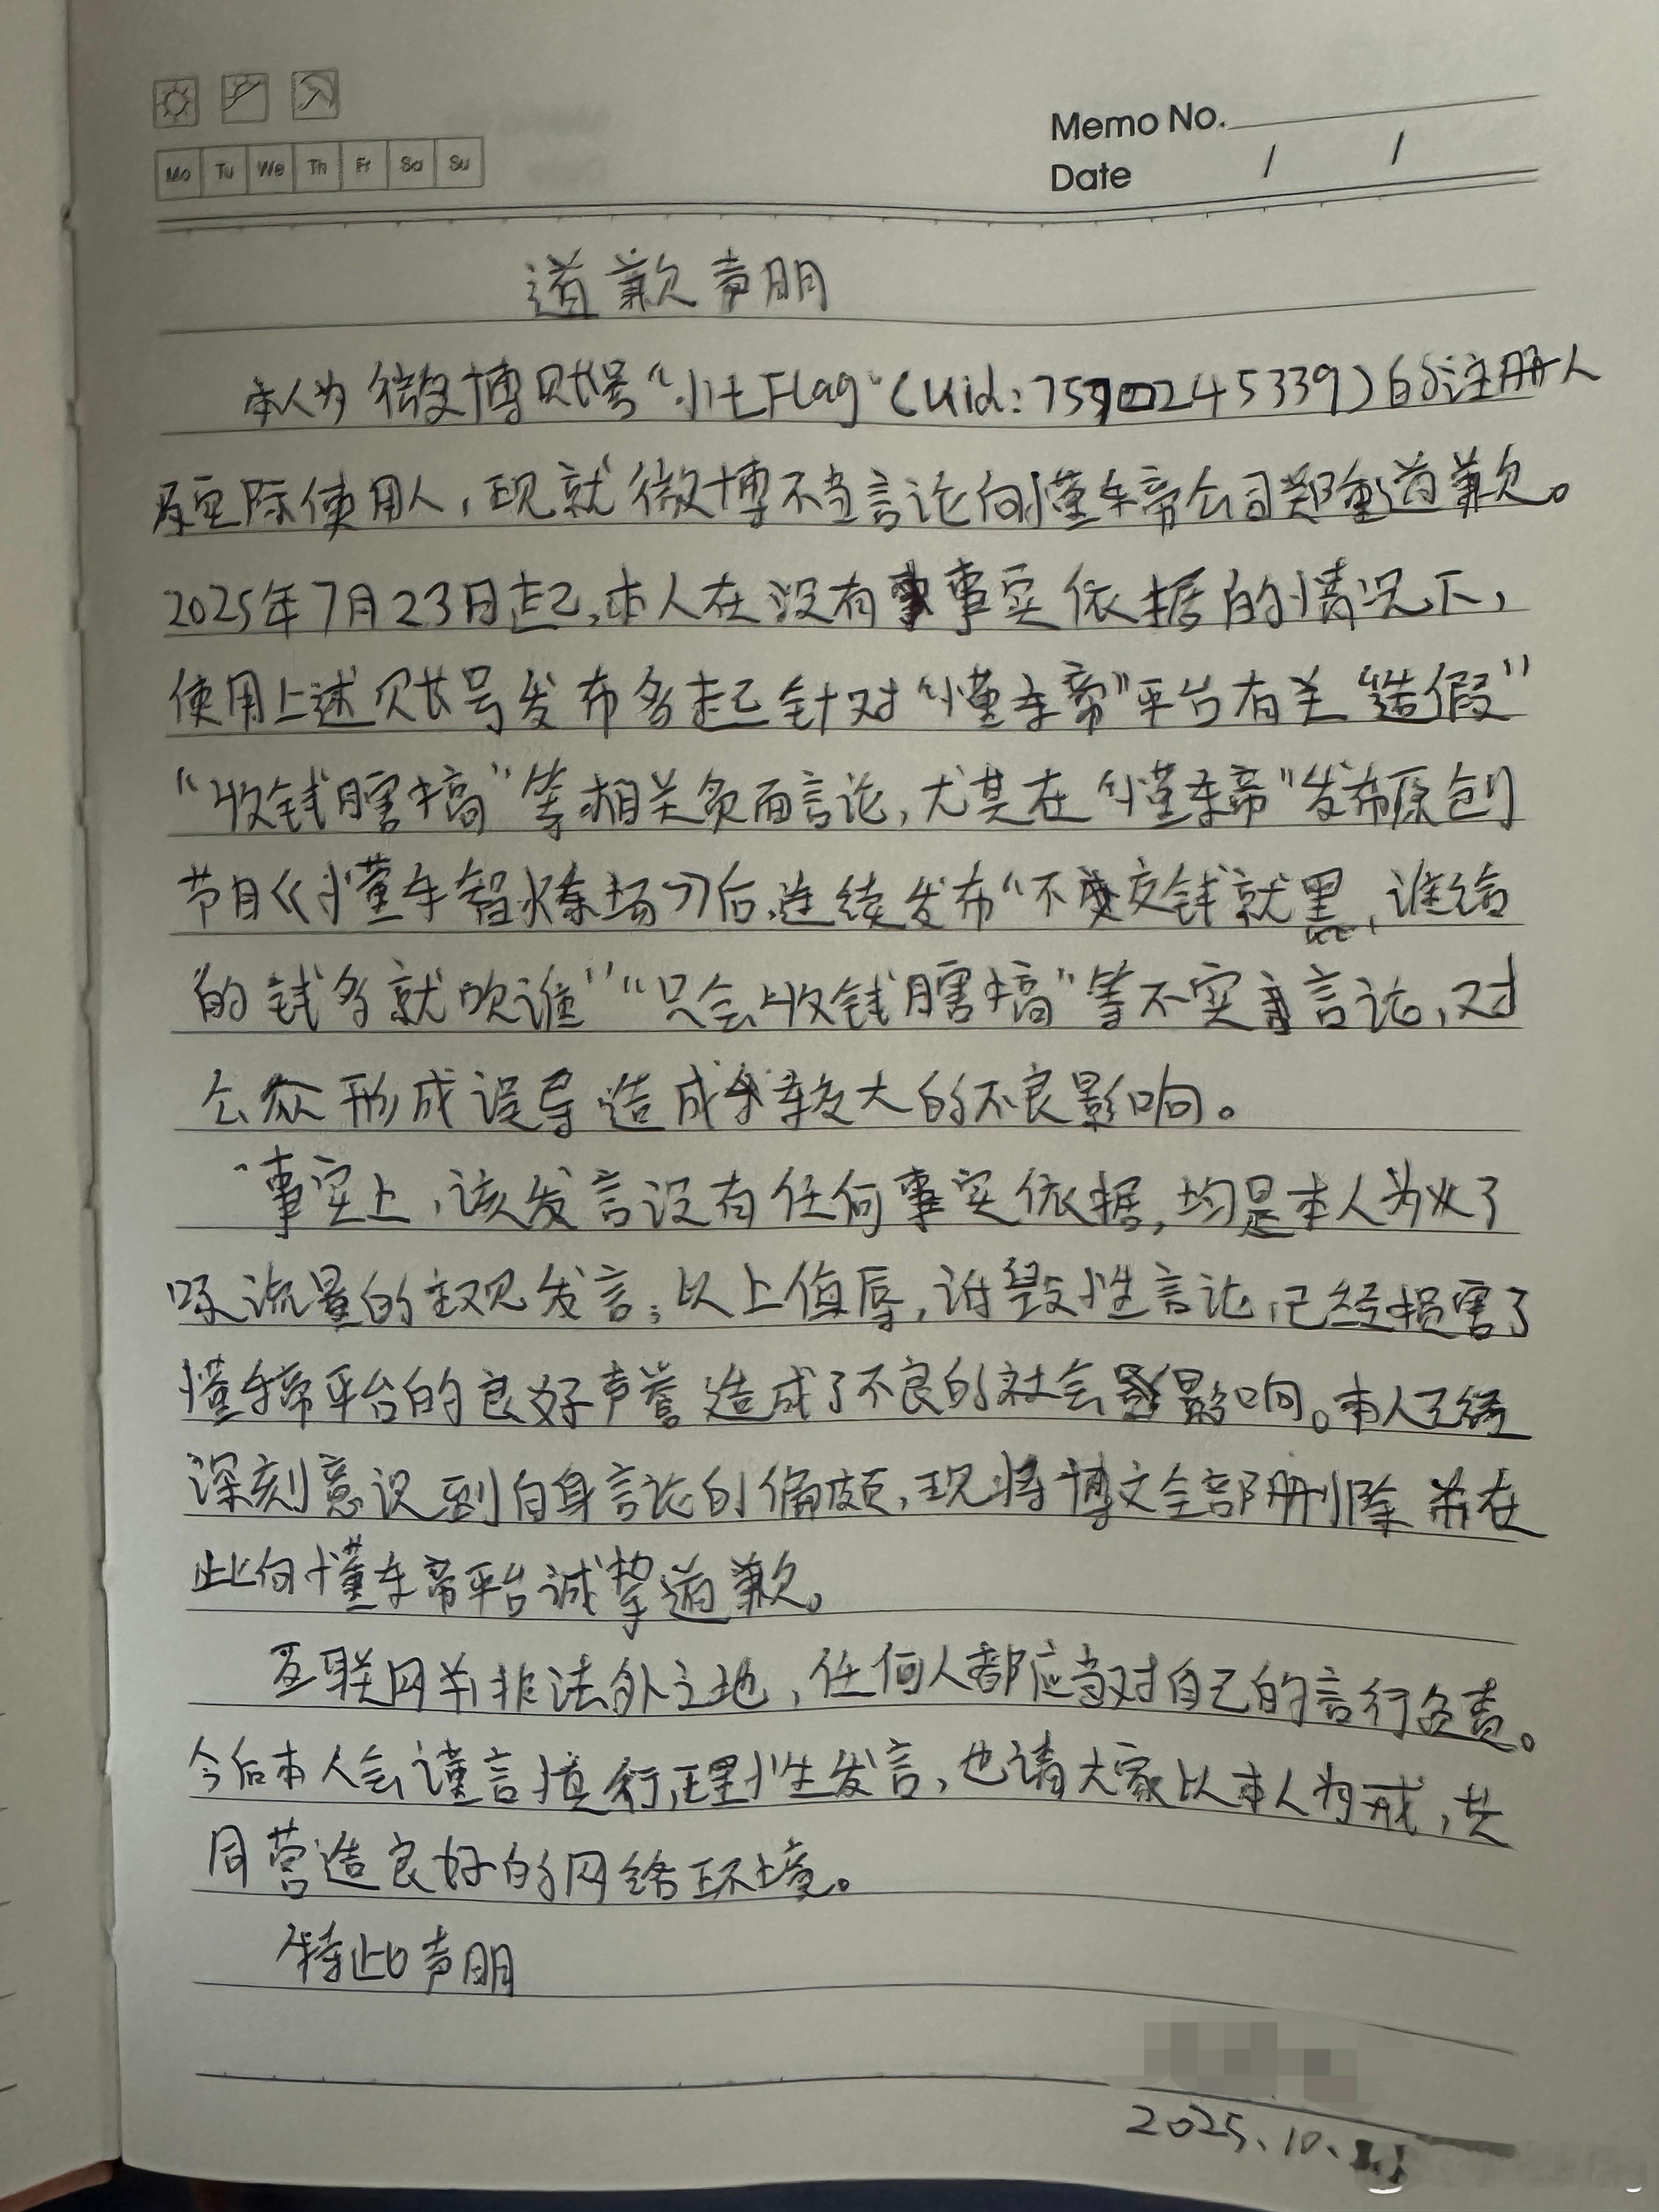 Mo Tu We Th Fr Sa Su
Memo No.
Date / /
道歉声明
本人为微博账号“小七Flag”(Uid:7590245339)的注册人
及实际使用人，现就微博不当言论向懂车帝公司郑重道歉。
2025年7月23日起，本人在没有事实依据的情况下，
使用上述账号发布多起针对“懂车帝”平台有关“造假”
“收钱瞎搞”等相关负面言论，尤其在“懂车帝”发布原创
节目《懂车智炼场》后，连续发布“不交钱就黑，谁给
的钱多就吹谁”“只会收钱瞎搞”等不实言论，对
公众形成误导造成较大的不良影响。
事实上，该发言没有任何事实依据，均是本人为了
吸流量的主观发言；以上侮辱，诽毁性言论，已经损害了
懂车帝平台的良好声誉造成了不良的社会影响。本人已经
深刻意识到自身言论的偏颇，现将博文全部删除并在
此向懂车帝平台诚挚道歉。
互联网并非法外之地，任何人都应当对自己的言行负责。
今后本人会谨言慎行，理性发言，也请大家以本人为戒，共
同营造良好的网络环境。
特此声明
2025.10.